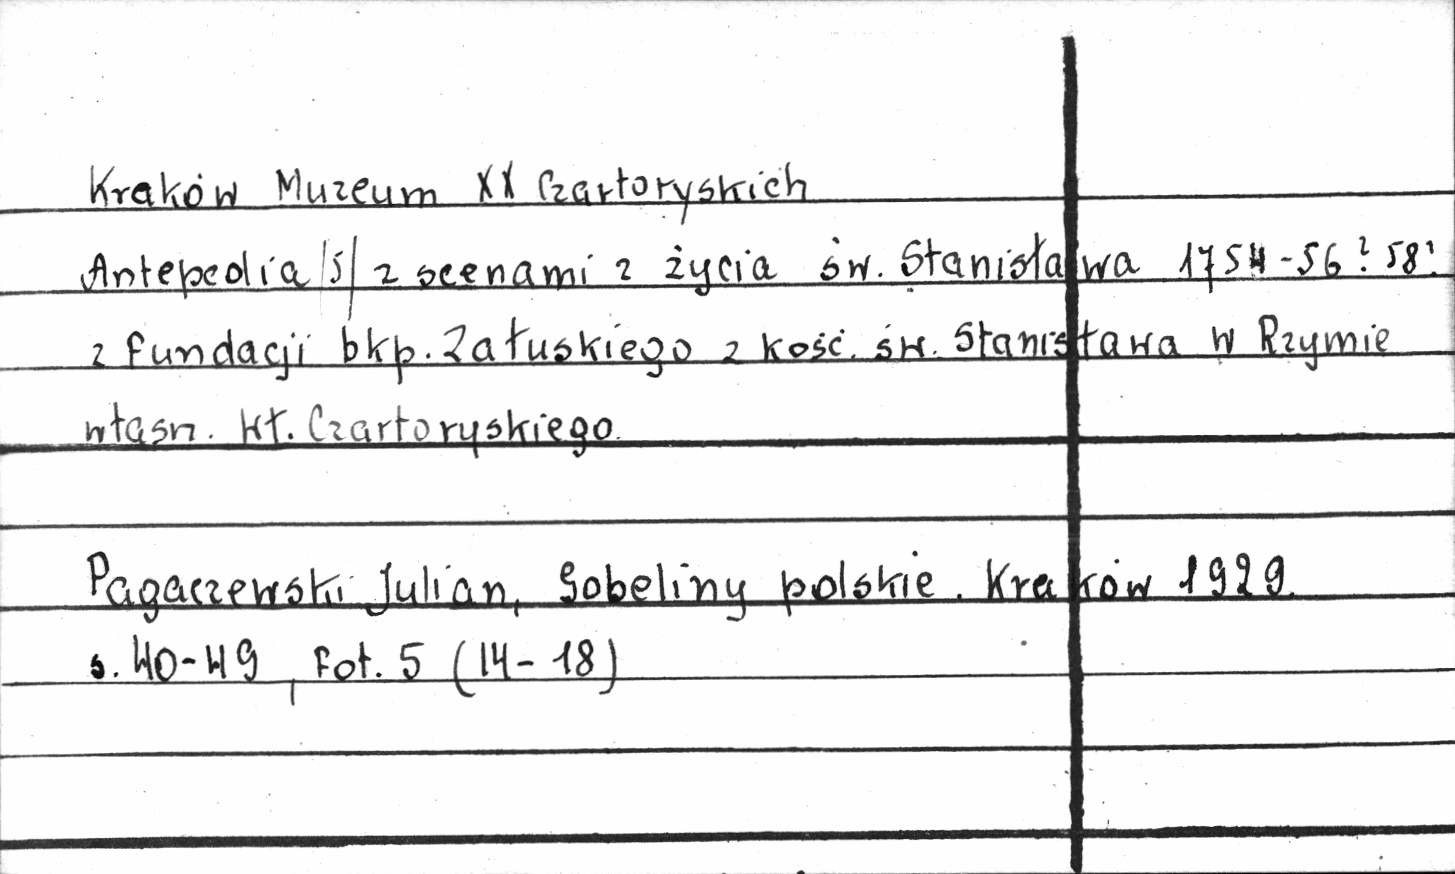 Kraków Muzeum XX Czartoryskich
Antepedia /5/ z scenami z życia św. Stanisława 1754-56? 58?
z fundacji bkp. Załuskiego z kość. św. Stanisława w Rzymie
własn. Wł. Czartoryskiego.
Pagaczewski Julian, Gobeliny polskie. Kraków 1929.
s. 40-49, Fot. 5 (14-18)